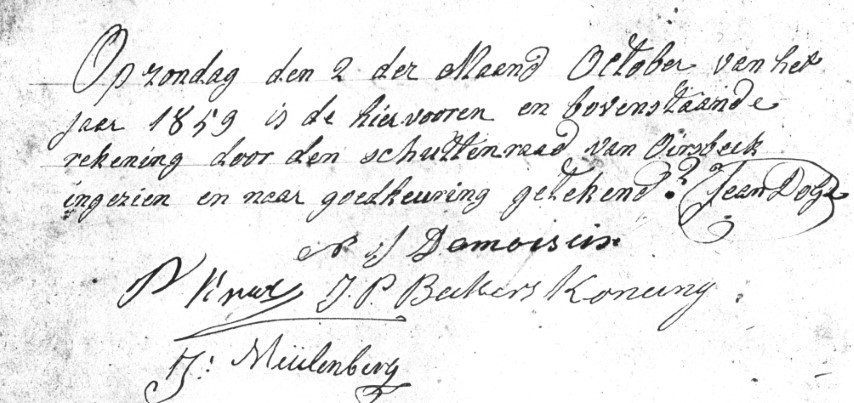 Op zondag den 2 der Maand October van het
jaar 1859 is de hier vooren en bovenstaande
rekening door den schuttenraad van Oirsbeek
ingezien en naar goedkeuring getekend. Jean
J Damoisein
P
J. P. Beckers Koning
J: Meulenberg